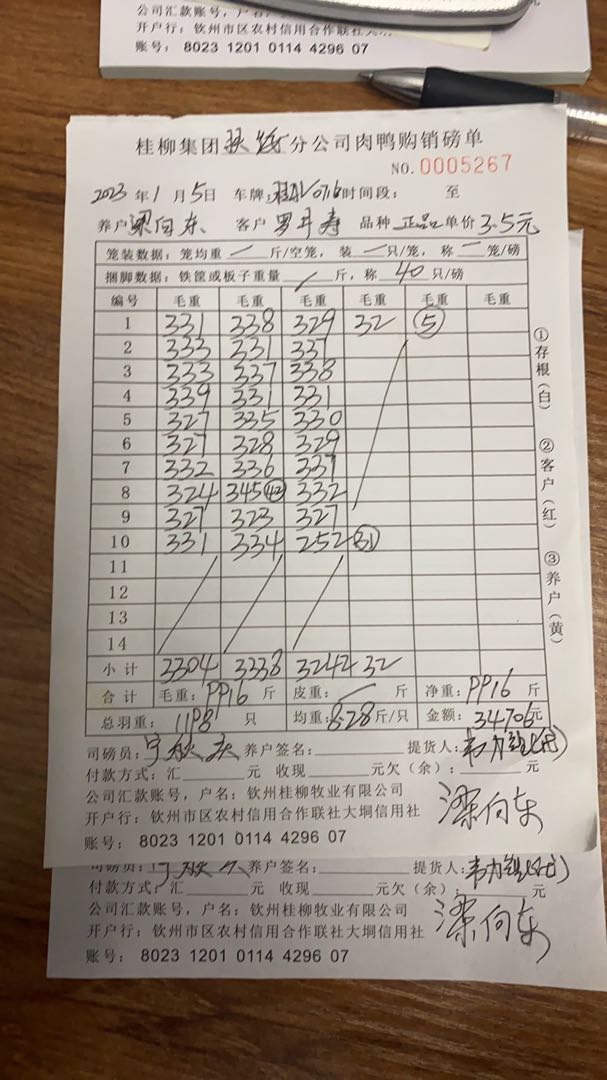 公司汇款账号，户名：
开户行：钦州市区农村信用合作联社大
账号：8023 1201 0114 4296 07
桂柳集团 分公司肉鸭购销磅单
NO.0005267
2023年1月5日 车牌： 0716 时间段： 至
养户 梁向东 客户 罗 寿 品种 正品 单价 3.5元
笼装数据：笼均重 斤/空笼，装 只/笼，称 笼/磅
捆脚数据：铁筐或板子重量 斤，称 40 只/磅
编号 毛重 毛重 毛重 毛重 毛重 毛重
1 331 338 329 32 5
2 333 331 337
3 333 337 338
4 339 331 331
5 327 335 330
6 327 328 329
7 332 336 337
8 324 345 42 332
9 327 323 327
10 331 334 252 31
11
12
13
14
小计 3304 3338 3242 32
合计 毛重：9916 斤 皮重： 斤 净重：9916 斤
总羽重：1198 只 均重：8.28 斤/只 金额：34706 元
①存根（白）
②客户（红）
③养户（黄）
司磅员：宁秋 养户签名： 提货人：韦
付款方式：汇 元 收现 元欠（余）： 元
公司汇款账号，户名：钦州桂柳牧业有限公司
开户行：钦州市区农村信用合作联社大垌信用社
账号：8023 1201 0114 4296 07
梁向东
司磅员：宁秋 养户签名： 提货人：韦
付款方式：汇 元 收现 元欠（余）： 元
公司汇款账号，户名：钦州桂柳牧业有限公司
开户行：钦州市区农村信用合作联社大垌信用社
账号：8023 1201 0114 4296 07
梁向东